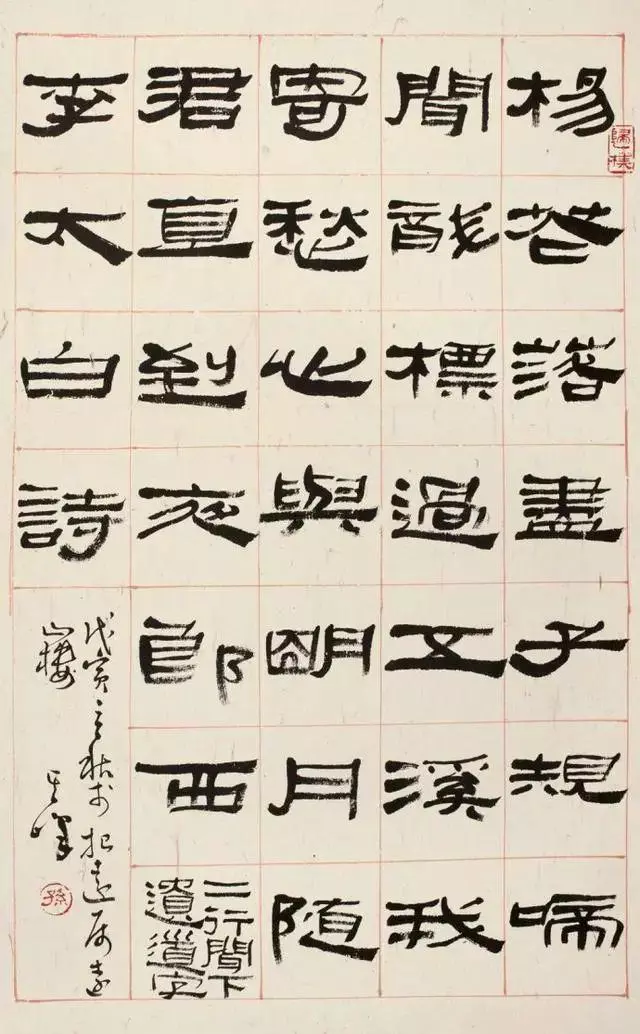 歸樸
楊花落盡子規啼
聞龍標過五溪我
寄愁心與朙月随
君直到夜郎西
二行聞下
遺道字
李太白詩
戊寅之秋於
山樓
其峰
孫